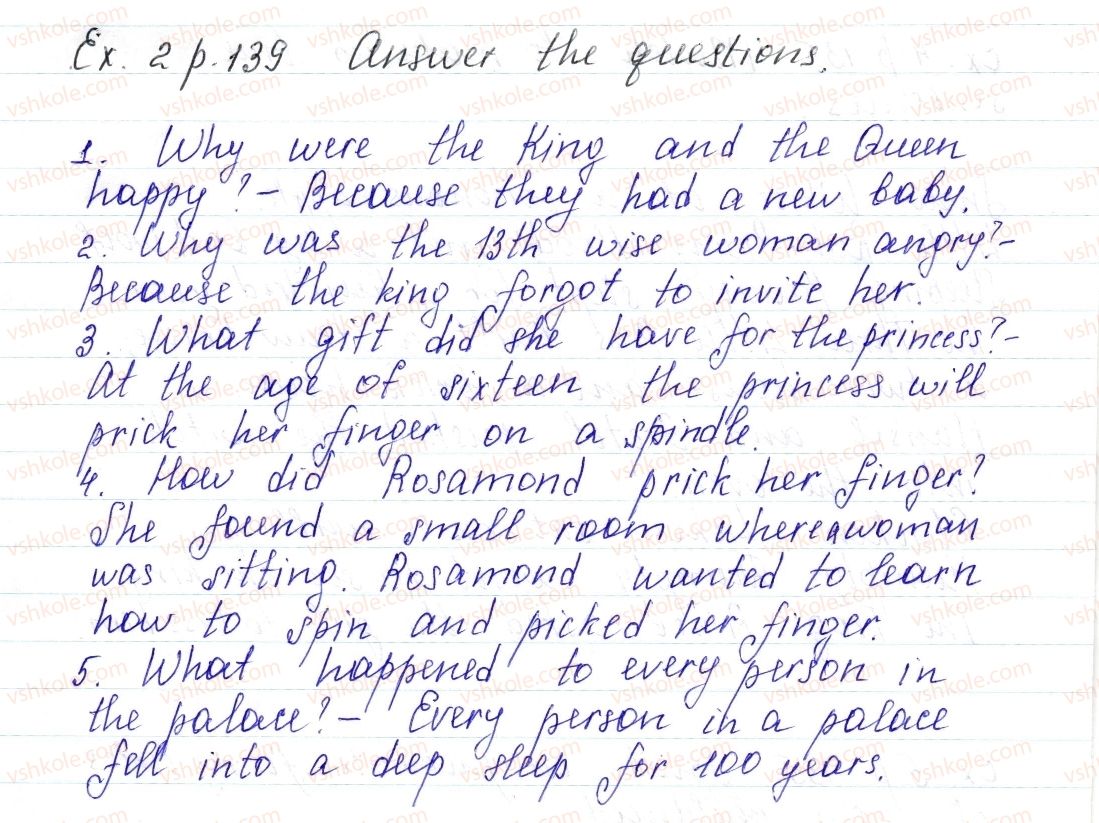 Ex. 2 p. 139 Answer the questions.
1. Why were the King and the Queen
happy? - Because they had a new baby.
2. Why was the 13th wise woman angry? -
Because the king forgot to invite her.
3. What gift did she have for the princess? -
At the age of sixteen the princess will
prick her finger on a spindle.
4. How did Rosamond prick her finger?
She found a small room where a woman
was sitting. Rosamond wanted to learn
how to spin and picked her finger.
5. What happened to every person in
the palace? - Every person in a palace
fell into a deep sleep for 100 years.